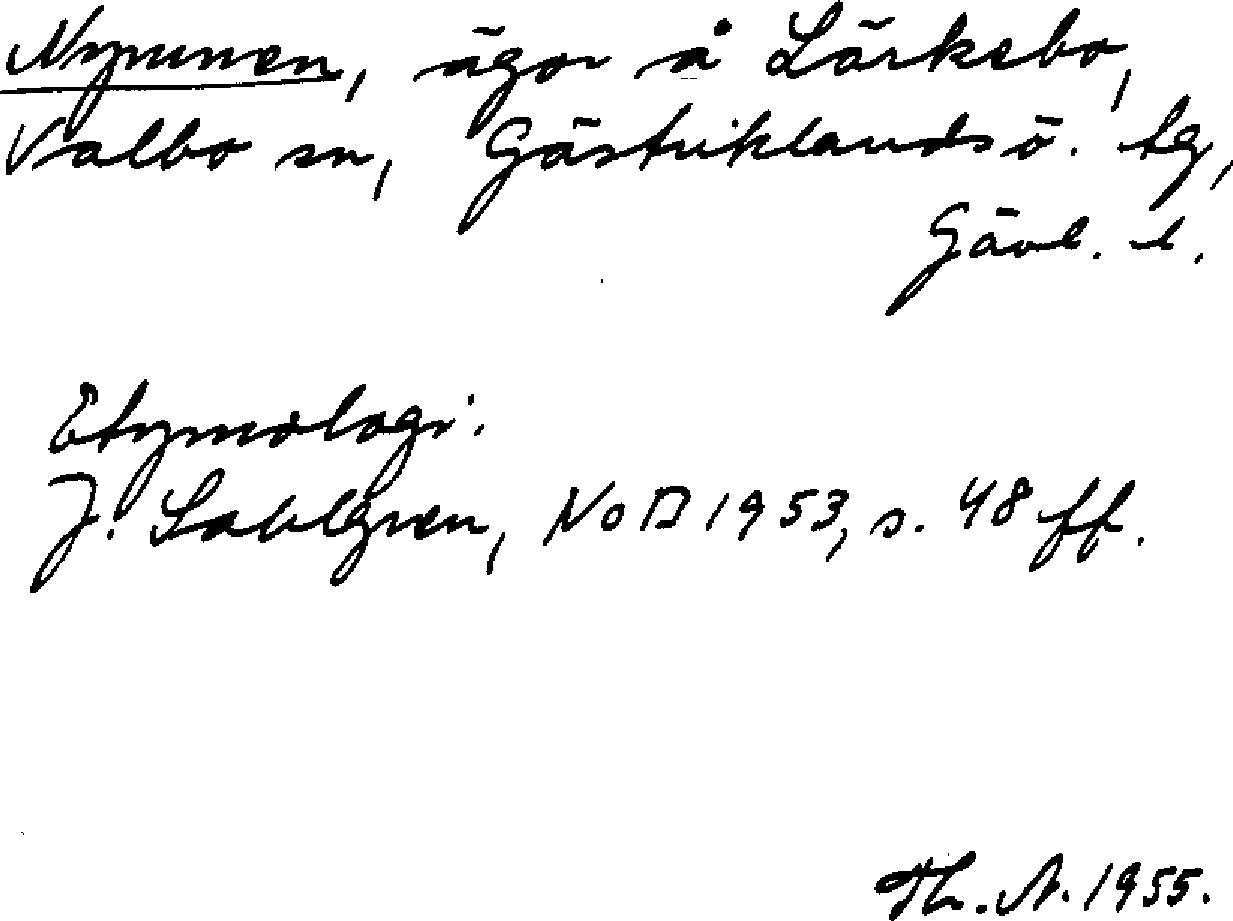 Nymmen, ägor å Lärkebo,
Valbo sn, Gästriklands ö. tg,
Gävl. l.
Etymologi:
J. Sahlgren, NoB 1953, s. 48 ff.
Th. A. 1955.